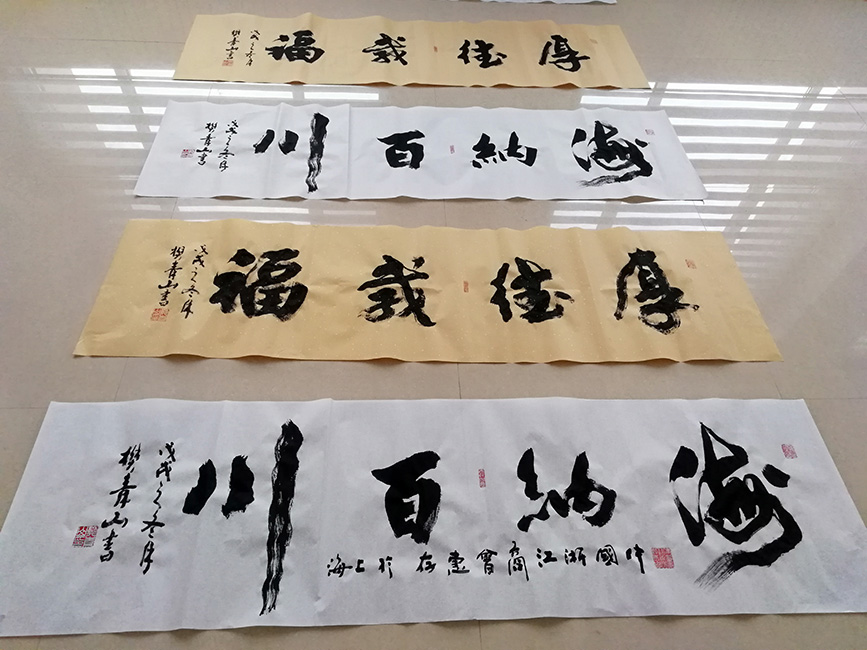 厚德載福
戊戌之冬月
青山書
海納百川
戊戌之冬月
青山書
厚德載福
戊戌之冬月
青山書
海納百川
中國浙江商會惠存於上海
戊戌之冬月
青山書